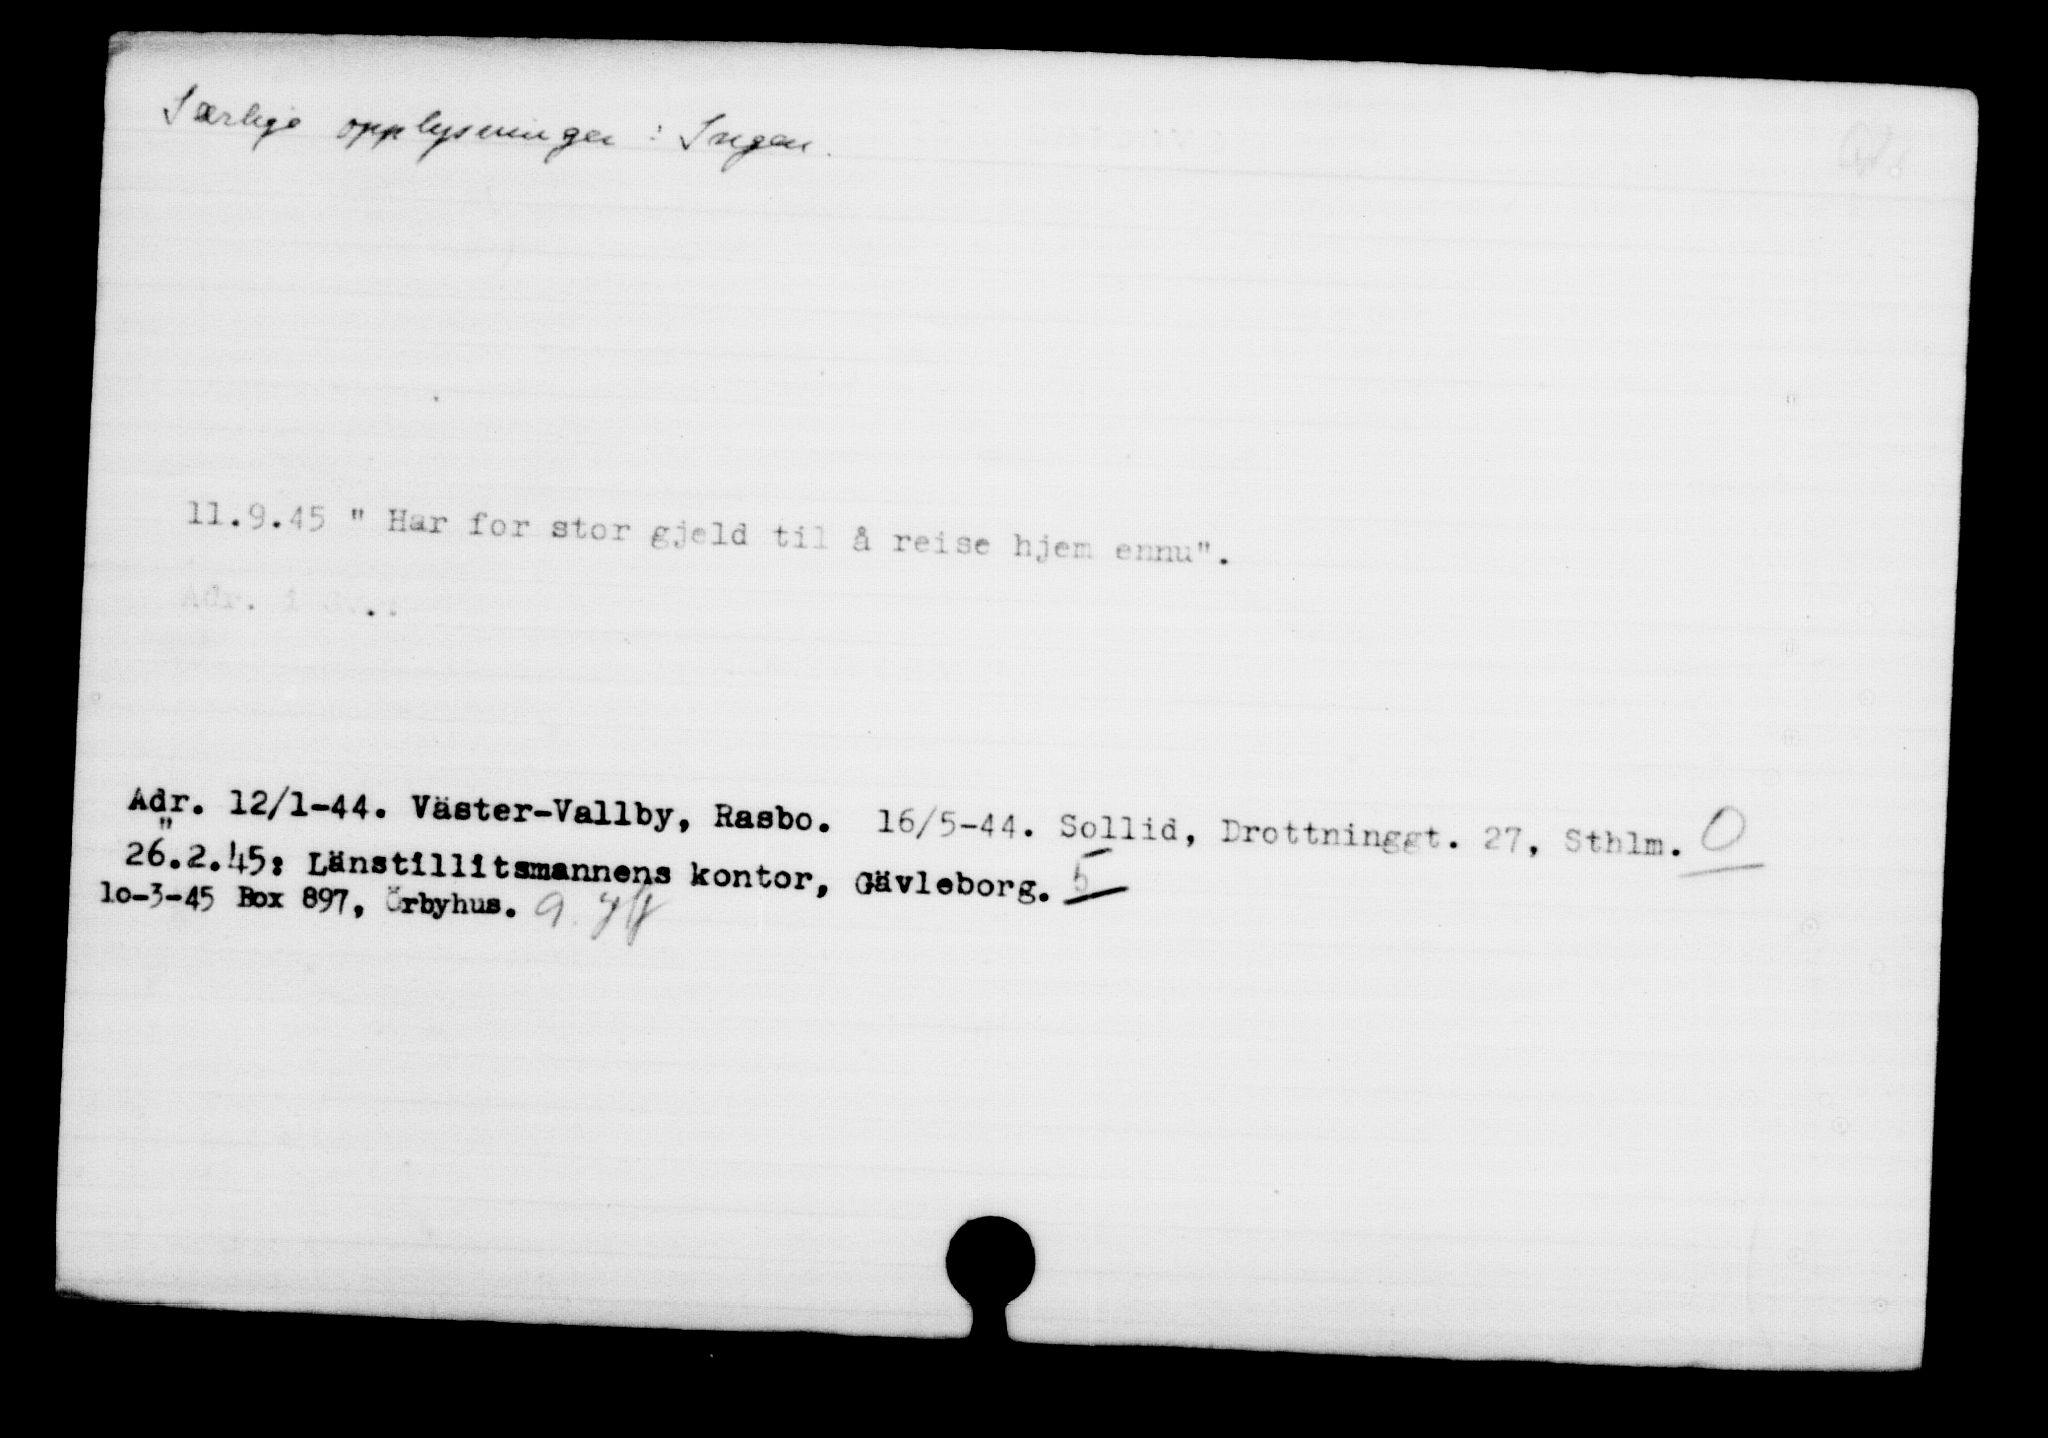 Særlige opplysninger : Ingen.
11.9.45 " Har for stor gjeld til å reise hjem ennu".
Adr. i
Adr. 12/1-44. Väster-Vallby, Rasbo. 16/5-44. Sollid, Drottninggt. 27, Sthlm. O
"
26.2.45: Länstillitsmannens kontor, Gävleborg. 5
lo-3-45 Box 897, Örbyhus. 9.